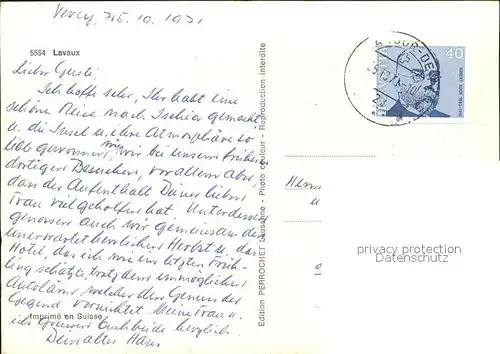 5564 Lavaux
Lieber Gersti.
Ich hoffe sehr, Ihr habt eine
schöne Reise nach Ischia gemacht
u. die Insel u. ihre Atmosphäre so
lieb gewonnen, wie wir bei unseren früheren
dortigen Besuchen, vor allem aber
dass der Aufenthalt Deiner lieben
Frau viel geholfen hat. Unterdessen
genossen auch wir gemeinsam den
unerwartet herrlichen Herbst u. das
Hotel, das ich wie im letzten Früh-
ling schätze, trotz dem unmöglichen
Autolärm, welcher den Genuss der
Gegend vernichtet. Meine Frau u.
ich grüssen Euch beide herzlich.
Dein alter Hans
Imprimé en Suisse
Edition PERROCHET Lausanne - Photo couleur - Reproduction interdite
40
privacy protection
Datenschutz